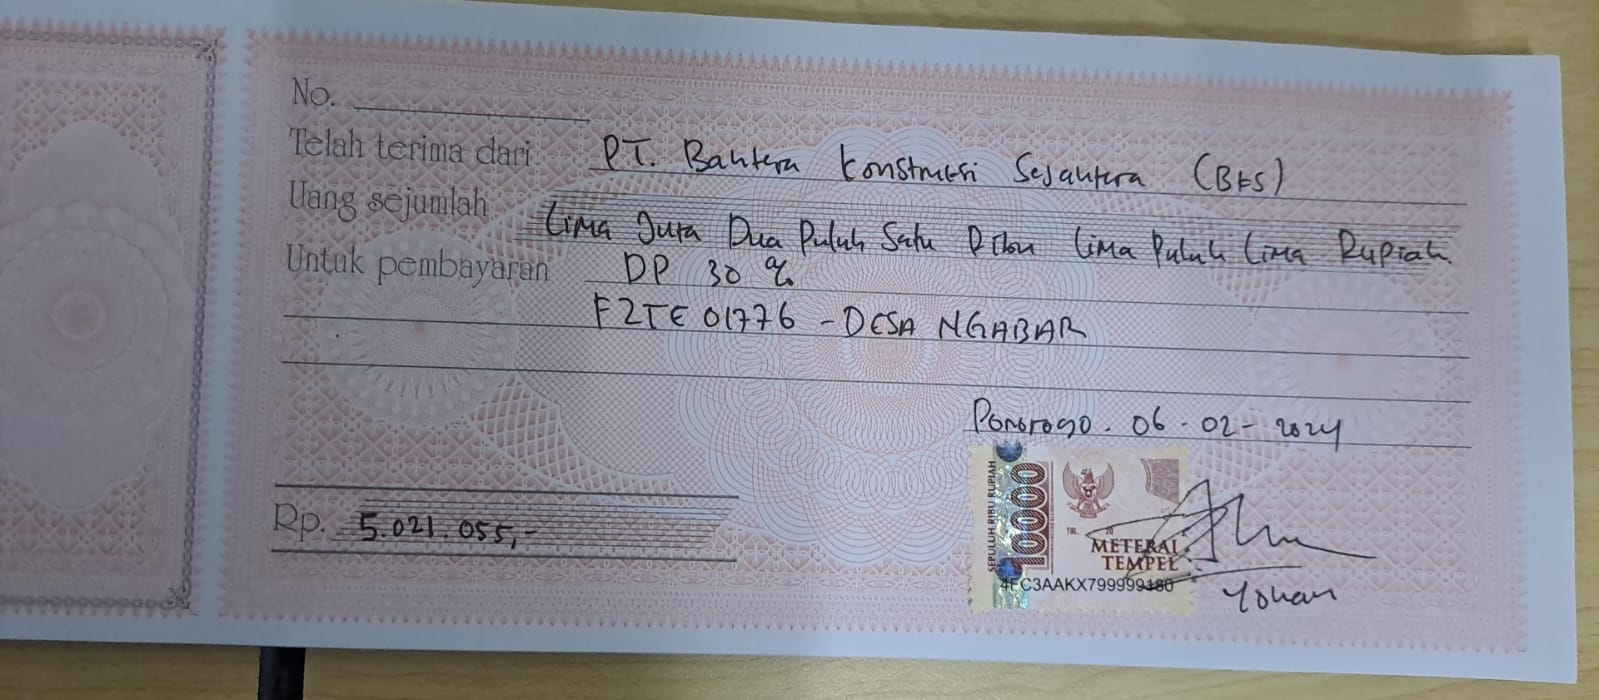 No.
Telah terima dari PT. Bahtera Konstruksi Sejahtera (BKS)
Uang sejumlah Lima Juta Dua Puluh Satu Ribu Lima Puluh Lima Rupiah.
Untuk pembayaran DP 30 %
F2TE01776 - DESA NGABAR
Ponorogo. 06 - 02 - 2024
Rp. 5.021.055,-
SEPULUH RIBU RUPIAH
10000
TGL. 20
METERAI
TEMPEL
4FC3AAKX799999180
Yohan